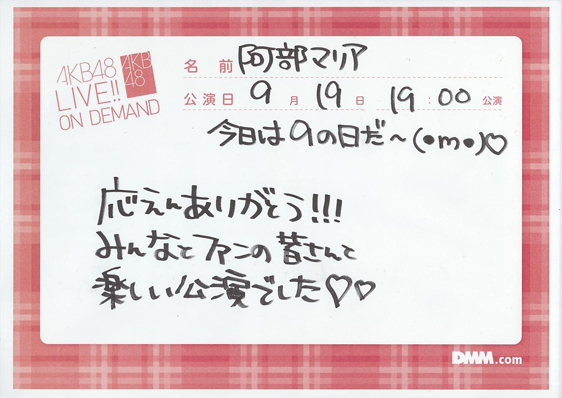 AKB48
LIVE!!
ON DEMAND
AKB
48
名前 阿部マリア
公演日 9月19日 19:00公演
今日は9の日だ〜(•m•)♡
応えんありがとう!!!
みんなとファンの皆さんと
楽しい公演でした♡♡
DMM.com